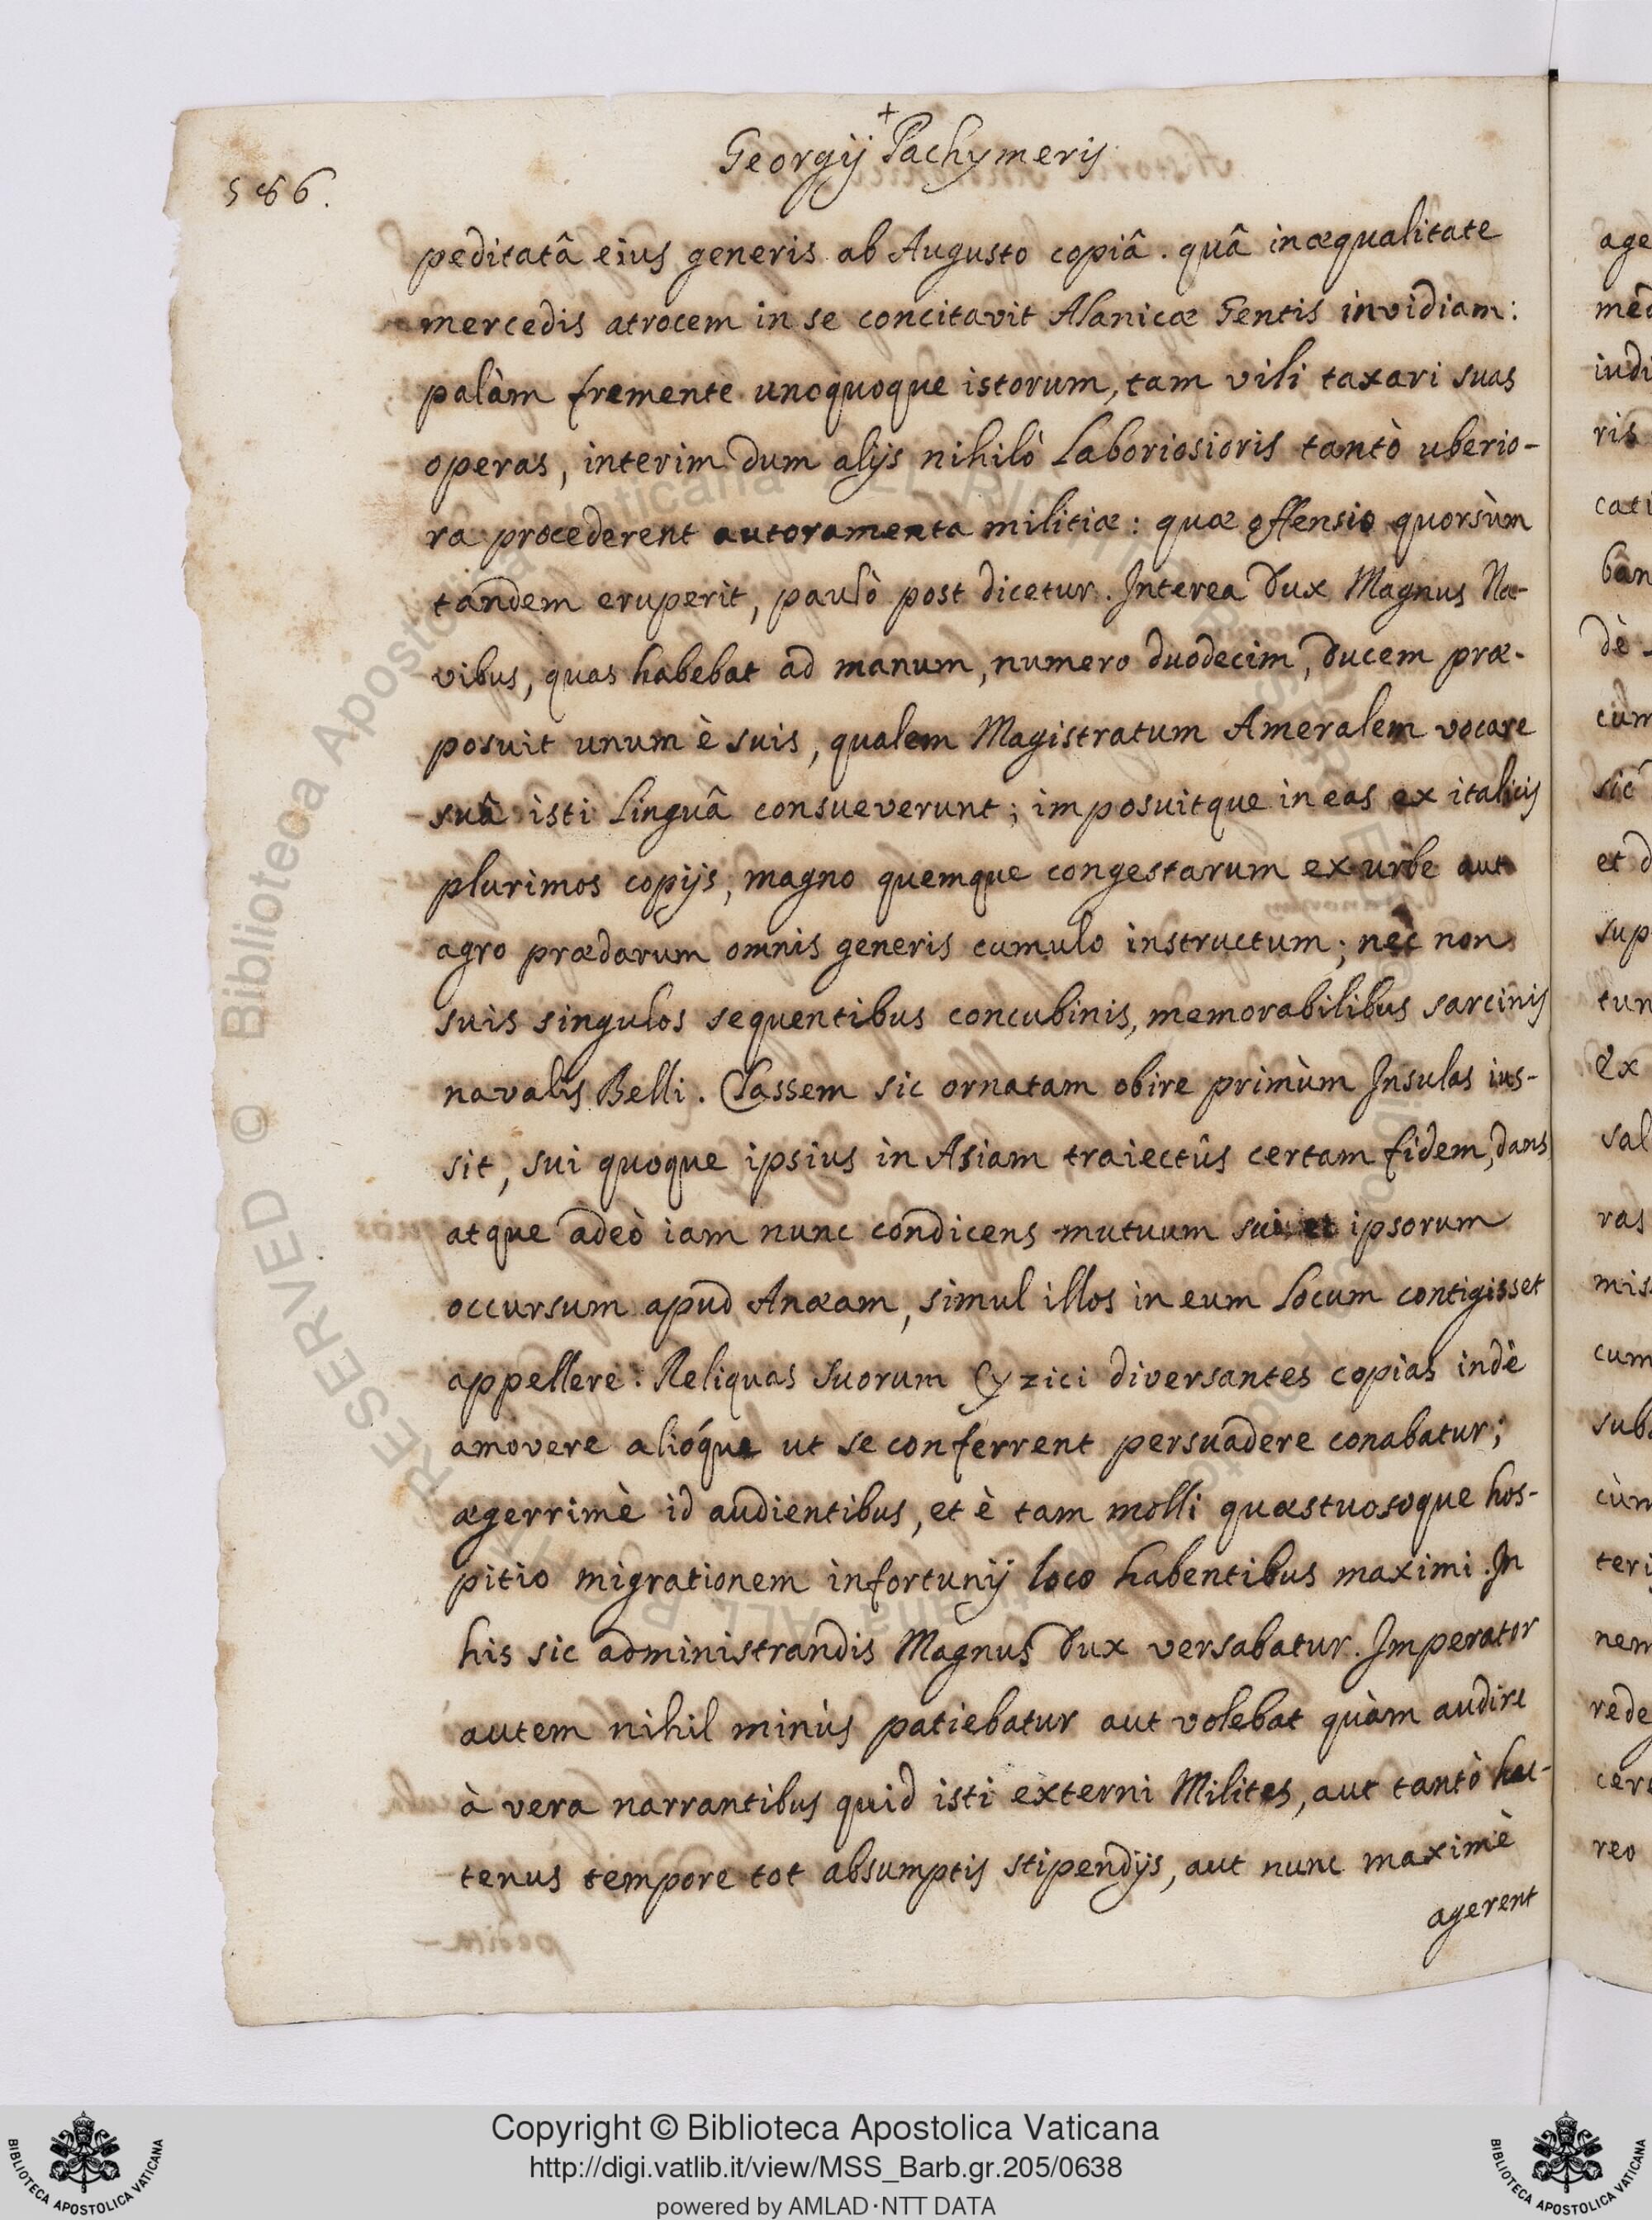 +
Georgij Pachymeris
586.
peditatâ eius generis ab Augusto copiâ. quâ inæqualitate
mercedis atrocem in se concitavit Alanicæ Gentis invidiam:
palàm fremente unoquoque istorum, tam vili taxari suas
operas, interim dum alijs nihilò Laboriosioris tantò uberio-
ra procederent autoramenta militiæ: quæ offensio quorsùm
tandem eruperit, paulò post dicetur. Interea Dux Magnus Na-
vibus, quas habebat ad manum, numero duodecim, Ducem præ-
posuit unum è suis, qualem Magistratum Ameralem vocare
suâ isti Linguâ consueverunt; imposuitque in eas ex italicis
plurimos copijs, magno quemque congestarum ex urbe aut
agro prædarum omnis generis cumulo instructum; nec non
suis singulos sequentibus concubinis, memorabilibus sarcinis
navalis Belli. Classem sic ornatam obire primùm Insulas ius-
sit, sui quoque ipsius in Asiam traiectûs certam fidem, dans
atque adeò iam nunc condicens mutuum sui et ipsorum
occursum apud Anæam, simul illos in eum Locum contigisset
appellere. Reliquas suorum Cyzici diversantes copias indè
amovere alióque ut se conferrent persuadere conabatur;
ægerrimè id audientibus, et è tam molli quæstuosoque hos-
pitio migrationem infortunij loco habentibus maximi. In
his sic administrandis Magnus Dux versabatur. Imperator
autem nihil minùs patiebatur aut volebat quàm audire
à vera narrantibus quid isti externi Milites, aut tantò hac-
tenus tempore tot absumptis stipendijs, aut nunc maximè
agerent
Copyright © Biblioteca Apostolica Vaticana
http://digi.vatlib.it/view/MSS_Barb.gr.205/0638
powered by AMLAD·NTT DATA
BIBLIOTECA APOSTOLICA VATICANA
BIBLIOTECA APOSTOLICA VATICANA